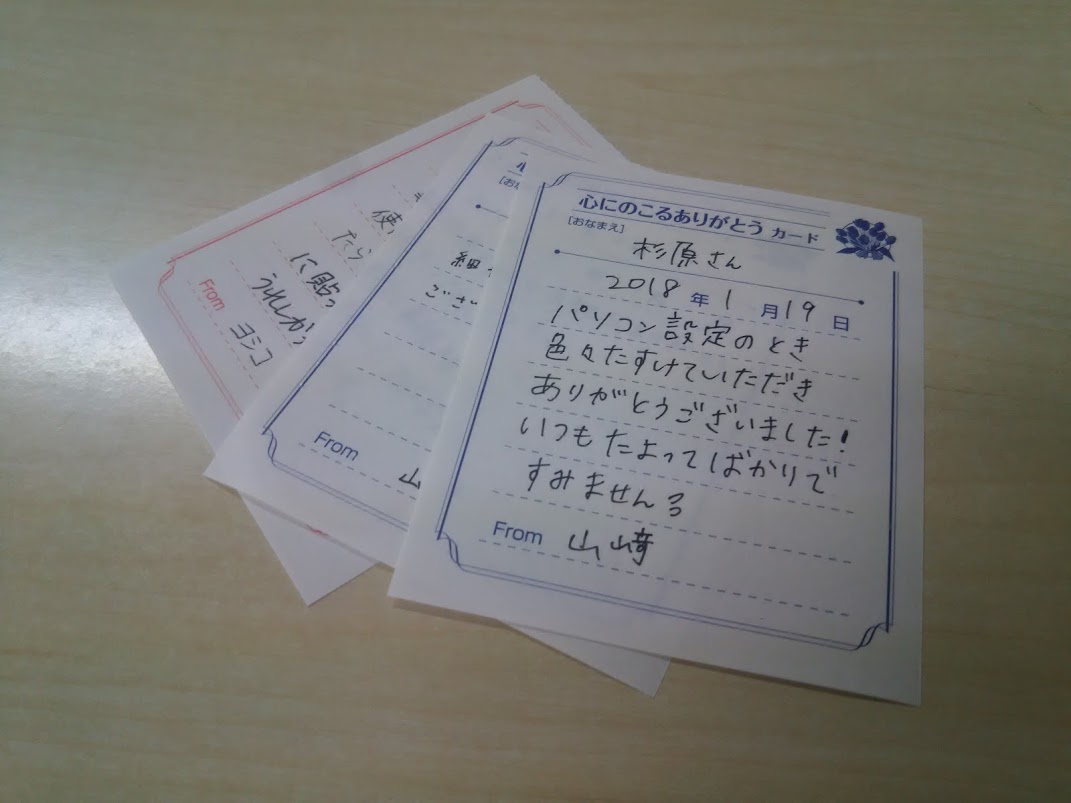 心にのこるありがとう カード
[おなまえ]
杉原さん
2018 年 1 月 19 日
パソコン設定のとき
色々たすけていただき
ありがとうございました!
いつもたよってばかりで
すみません
From 山﨑
心
[おな
細
ござ
From 山
使
たら
に貼っ
うれしかっ
From ヨシコ